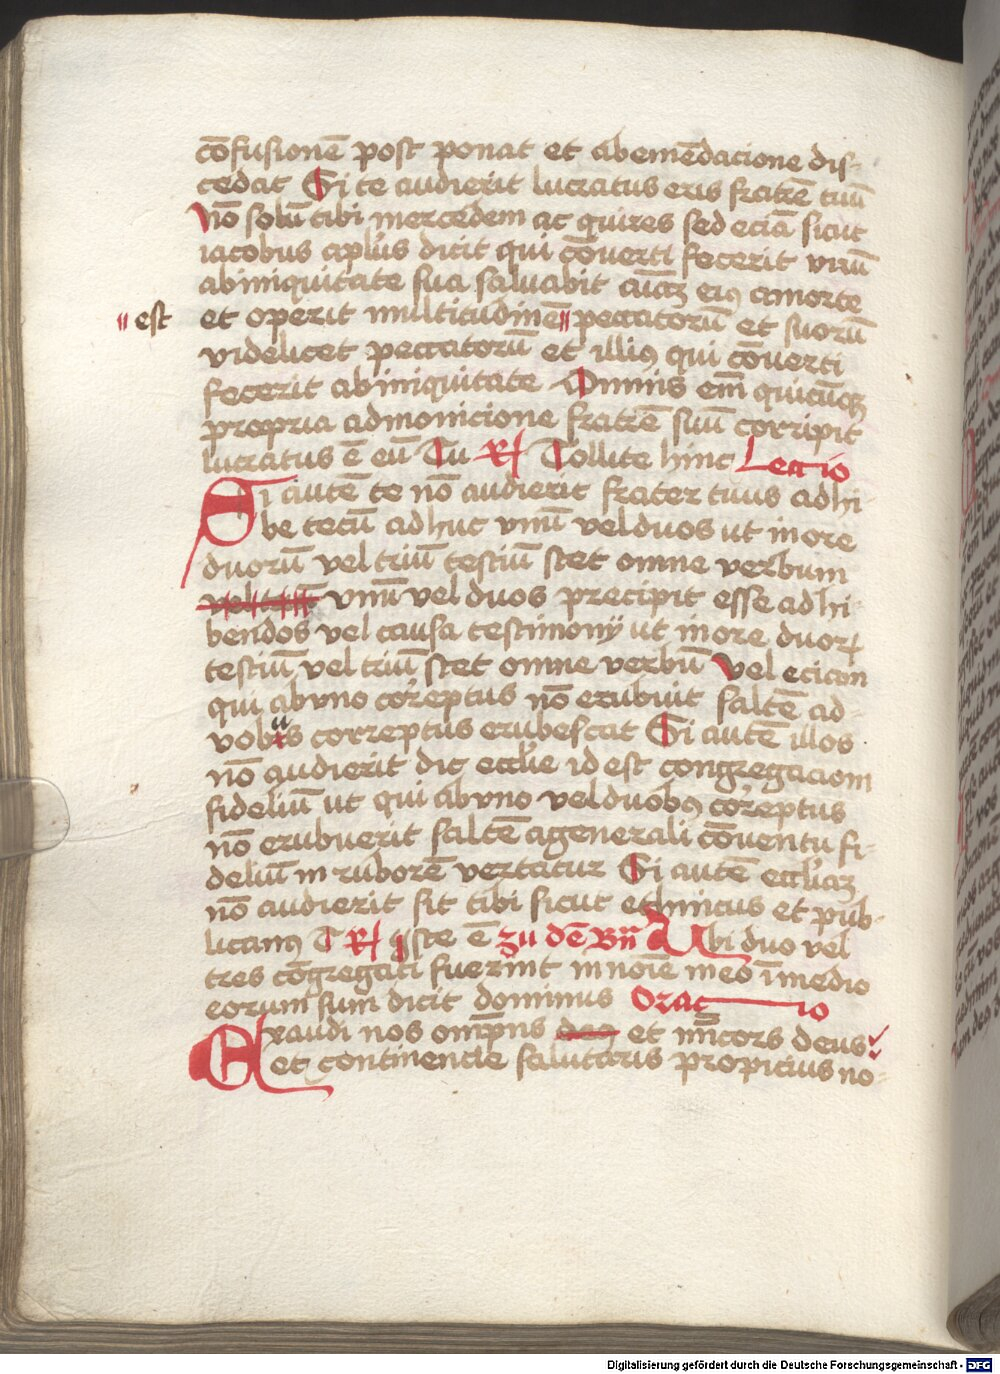 cōfusionē post ponat et abemēdacione dis-
cedat Si te audierit lucratus eris fratrē tuū
Nō solū tibi mercedem ac quires sed eciā sicut
iacobus aplūs dicit qui cōuerti fecerit vnū
abiniquitate sua saluabit aīaꝫ eiꝰ amorte
est et operit multitudinē peccatorū et suorū
videlicet peccatorū et illiꝰ qui cōuerti
fecerit abiniquitate Omnis em̄ quicūqꝫ
propria admonicione fratrē suū corripit
lucratus ē eū Tu R Tollite hinc Lectio
Si autē te nō audierit frater tuus adhi
be tecū adhuc vnū vel duos ut in ore
duorū vel triū testiū stet omne verbum
vnū vel duos precipit esse adhi
bendos vel causa testimonij ut in ore duorꝝ
testiū vel triū stet omne verbū Vel eciam
qui abvno coreptus nō erubuit saltē ad-
vobus correptus erubescat Si autē illos
nō audierit dic ecclīe id est congregacioni
fideliū ut qui abvno vel duobꝰ coreptus
nō erubuerit saltē agenerali cōuentu fi-
deliū in ruborē vertatur Si autē eccliaꝫ
nō audierit sit tibi sicut ethnicus et pub-
licanꝰ T R iste ē zu dē Bn̄ Ubi duo vel
tres cōgregati fuerint in noīe meo ī medio
eorum sum dicit dominus Oracio
Exaudi nos omp̄ns deꝰ et mīcors deus
et continencie salutaris propicius no-
Digitalisierung gefördert durch die Deutsche Forschungsgemeinschaft - DFG